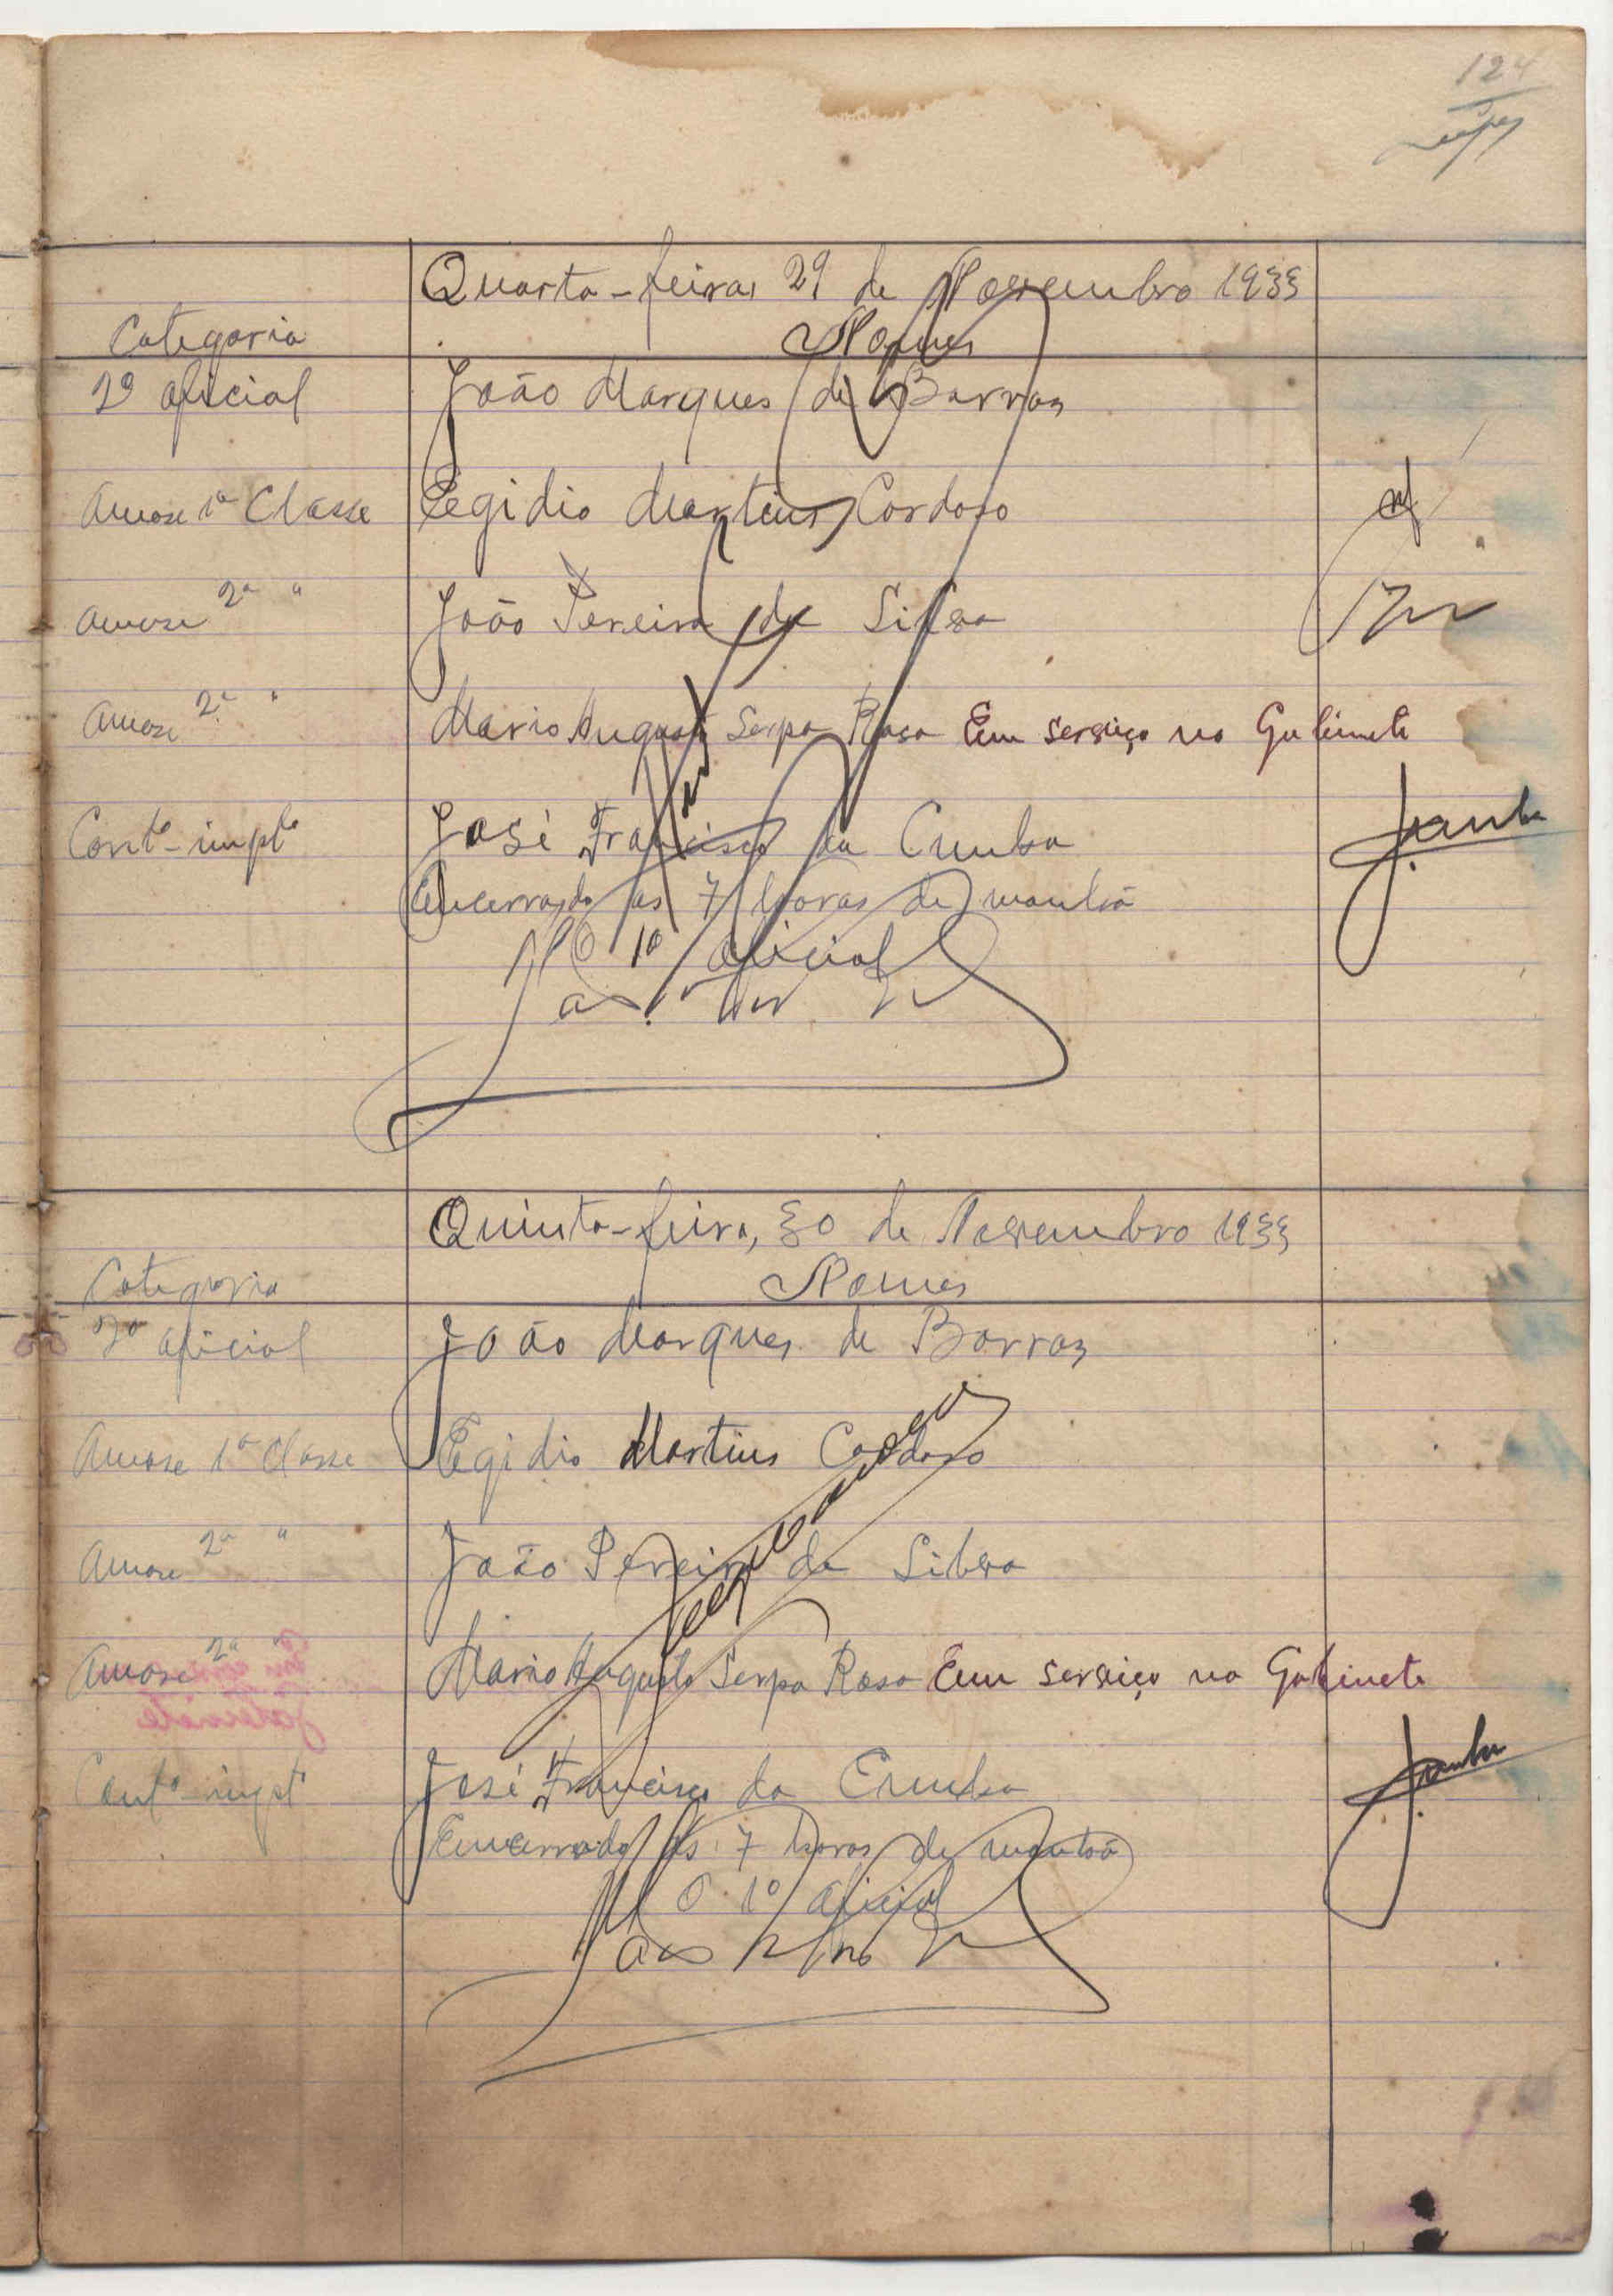 124
Quarta-feira, 29 de Novembro 1933
Categoria Nomes
2º Oficial João Marques de Barros
Amase 1ª Classe Egidio Martins Cardoso
Amase 2ª " João Pereira da Silva
Amase 2ª " Mario Augusto Serpa Rosa Em serviço no Gabinete
Contº impº José Francisco da Cunha JCunha
Encerrado ás 7 horas da manhã
O 1º Oficial
Quinta-feira, 30 de Novembro 1933
Categoria Nomes
2º Oficial João Marques de Barros
Amase 1ª Classe Egidio Martins Cardoso
Amase 2ª " João Pereira da Silva
Amase 2ª " Mario Augusto Serpa Rosa Em serviço no Gabinete
Contº impº José Francisco da Cunha JCunha
Encerrado ás 7 horas da manhã
O 1º Oficial